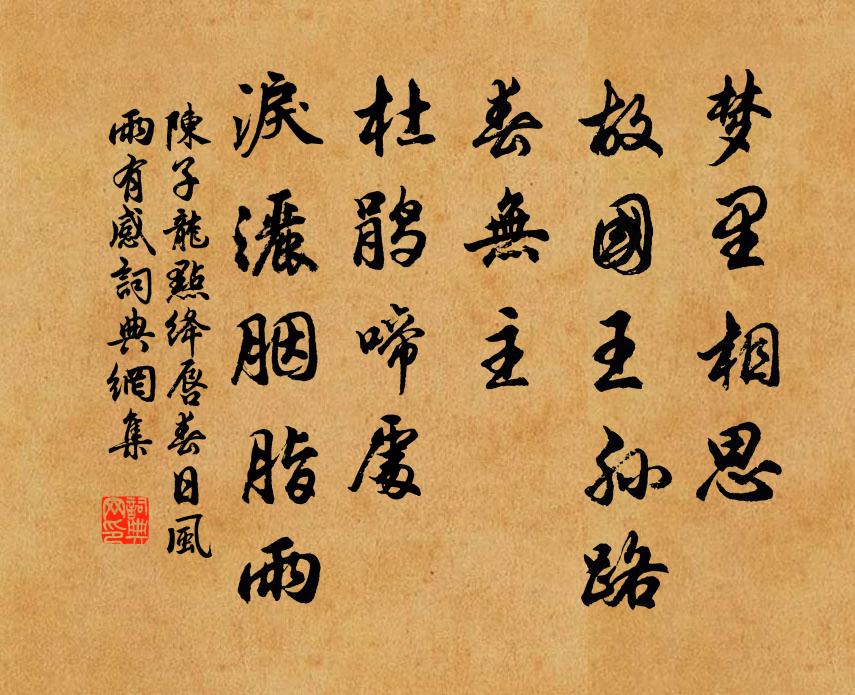 梦里相思
故國王孙路
春無主
杜鹃啼處
淚灑胭脂雨
陳子龍點绛唇春日風
雨有感詞典網集
詞典
网印